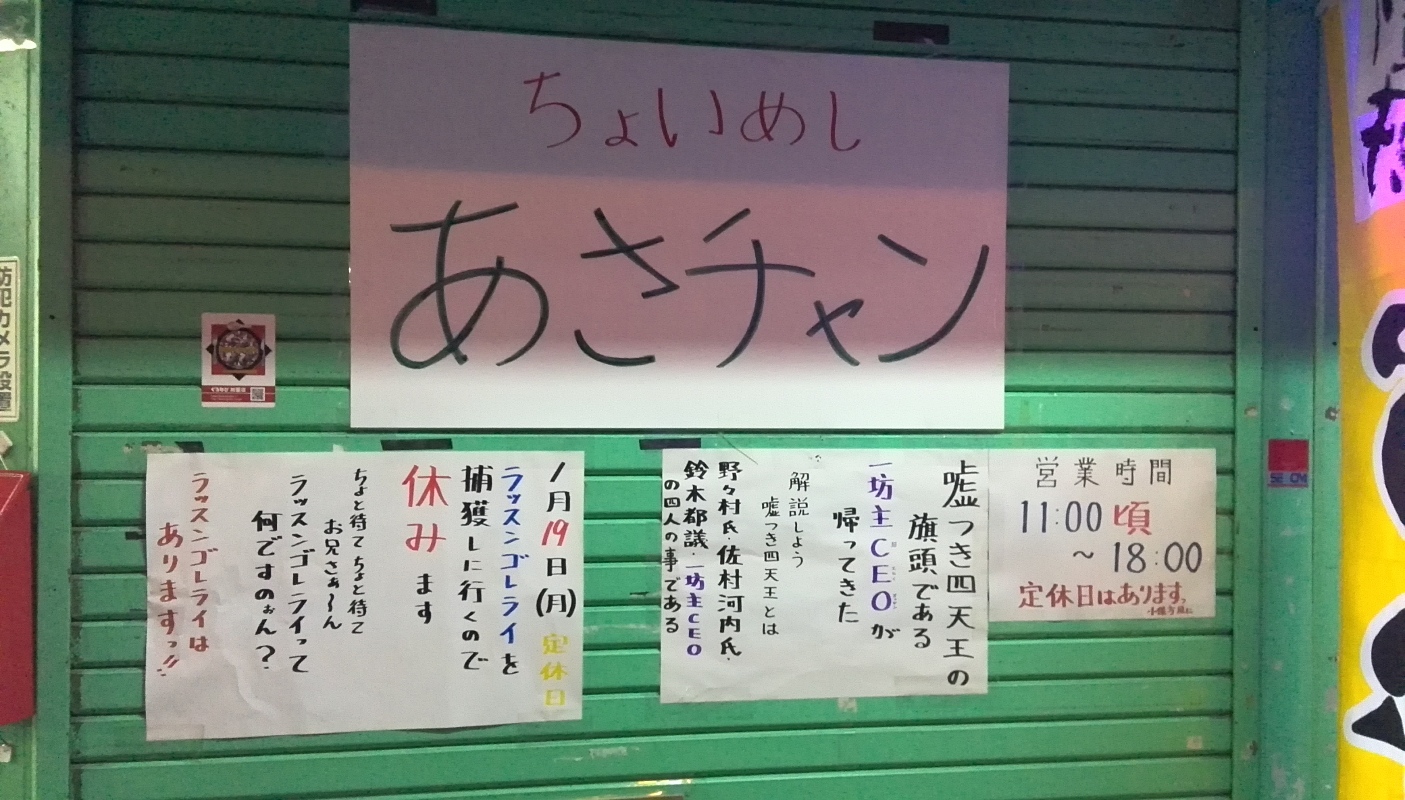 ちょいめし
あさチャン
営業時間
11:00頃
～18:00
定休日はあります。
嘘つき四天王の
旗頭である
一坊主CEOが
帰ってきた
解説しよう
嘘つき四天王とは
野々村氏・佐村河内氏・
鈴木都議・一坊主CEO
の四人の事である
1月19日(月)定休日
ラッスンゴレライを
捕獲しに行くので
休みます
ちょと待てちょと待て
お兄さぁ〜ん
ラッスンゴレライって
何ですのぉん？
ラッスンゴレライは
ありますっ!!
防犯カメラ設置
SECOM